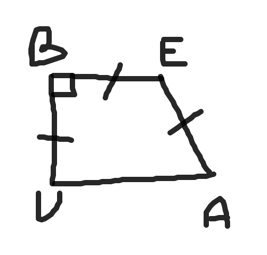 B E
U A